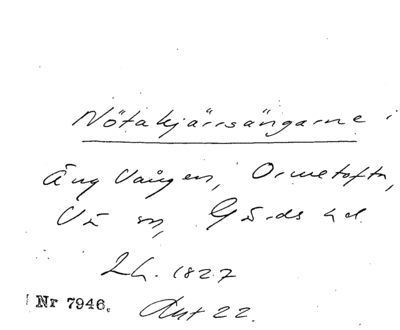 Nötakjärrsängarne i
Äng Vången, Ormetofta,
Vä sn, Gärds hd.
Lh. 1827
Nr 7946. Akt 22.